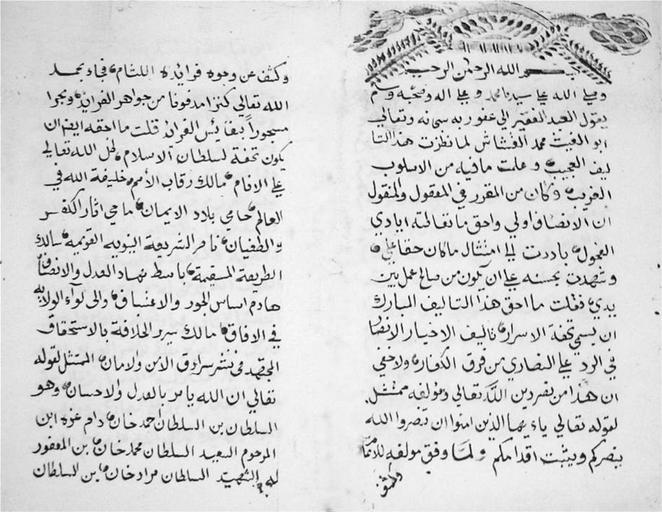 بسم الله الرحمن الرحيم
وصلى الله على سيدنا محمد وعلى اله وصحبه وسلم
يقول العبد الفقير الى عفو ربه سبحانه وتعالى
ابو الغيث محمد القشاش لما نظرت هذا التا
ليف العجيب وعلمت مافيه من الاسلوب
الغريب وكان من المقرر في المعقول والمنقول
ان الانصاف اولى واحق ما تقالته ايادي
الفحول بادرت الى امتثال ماكان حقا علي
وشهدت بحسنه على ان يكون من صالح عمل بين
يدي فقلت ما احق هذا التاليف المبارك
ان يسمى تحفة الاسرار تاليف الاخيار الانصا
في الرد على النصارى من فرق الكفار ولا خفي
ان هذا من نصر دين الله تعالى ومؤلفه ممتثل
لقوله تعالى ياءيها الذين امنوا ان تنصروا الله
ينصركم ويثبت اقدامكم ولما وفق مولفه للاتما
وكشف عن وجوه فرائده اللثام فجاء بحمد
الله تعالى كنزا مدفونا من جواهر الفرائد وبحرا
مسجورا بنفايس الفرائد قلت ما احقه ايضا ان
يكون تحفة لسلطان الاسلام ظل الله تعالى
على الانام مالك رقاب الأمم خليفة الله في
العالم حامي بلاد الايمان ماحي اثار الكفر
والطغيان ناصر الشريعة النبويه القويمه سالك
الطريقة المستقيمة باسط مهاد العدل والانصاف
هادم اساس الجور والاعتساف والي لواء الولايه
في الافاق مالك سرير الخلافة بالاستحقاق
المجتهد في نشر سرادق الأمن والامان الممتثل لقوله
تعالى ان الله يامر بالعدل والاحسان وهو
السلطان بن السلطان احمد خان دام عزه ابن
المرحوم السعيد السلطان محمد خان بن المغفور
له الشهيد السلطان مراد خان بن السلطان